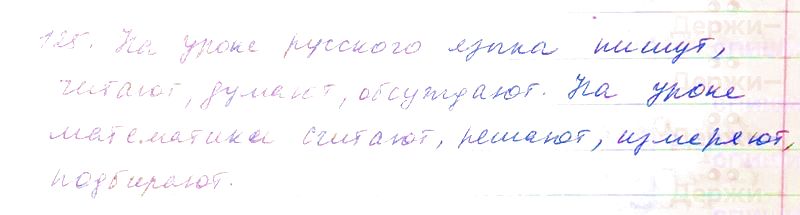 125. На уроке русского языка пишут,
читают, думают, обсуждают. На уроке
математики считают, решают, измеряют,
подбирают.